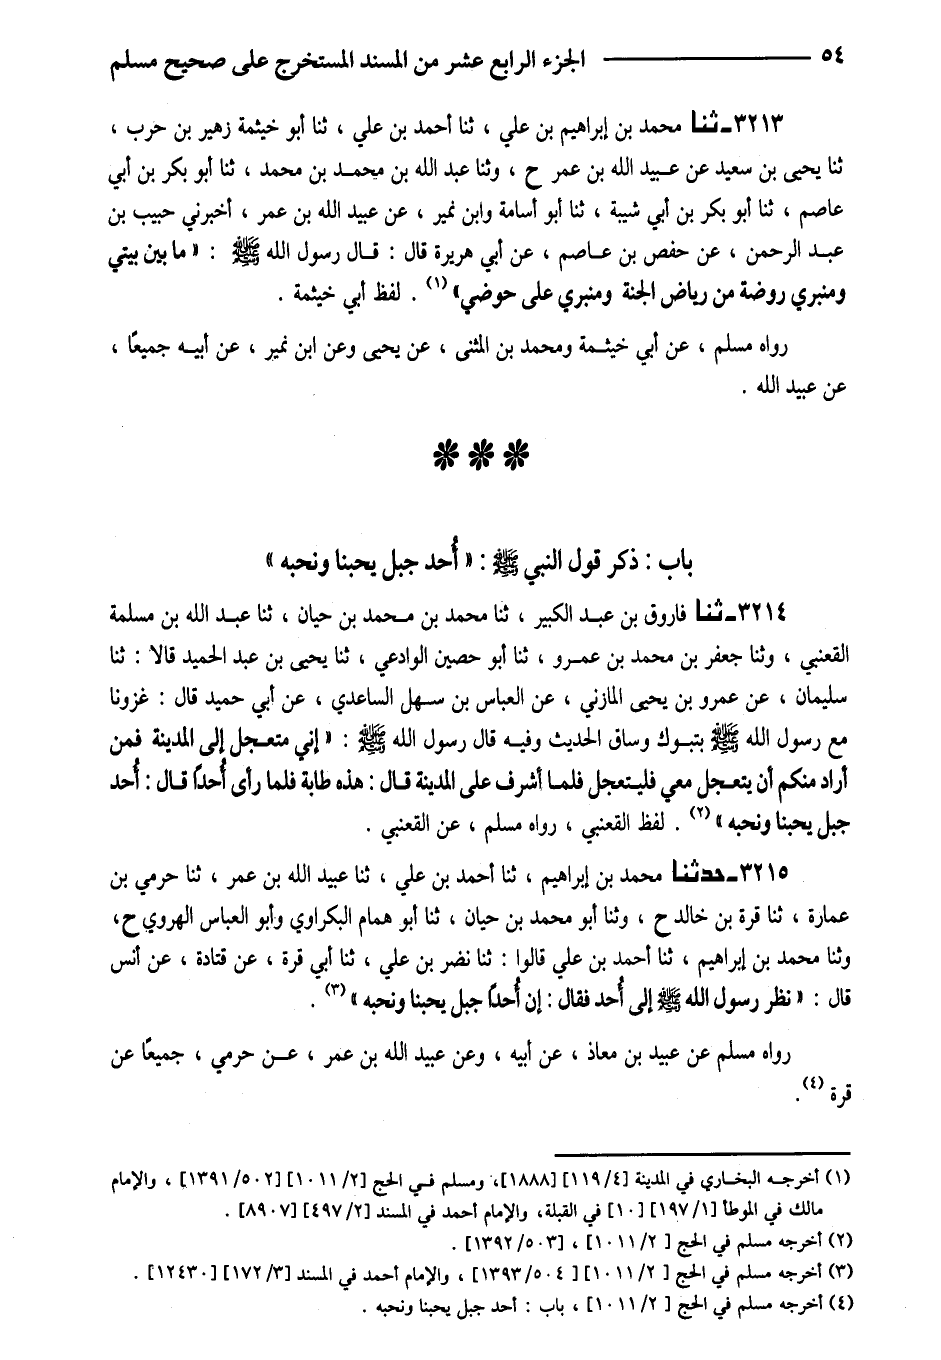 ٥٤ الجزء الرابع عشر من المسند المستخرج على صحيح مسلم
٣٢١٣ـ ثنا محمد بن إبراهيم بن علي ، ثنا أحمد بن علي ، ثنا أبو خيثمة زهير بن حرب ،
ثنا يحيى بن سعيد عن عبيد الله بن عمر ح ، وثنا عبد الله بن محمد بن محمد ، ثنا أبو بكر بن أبي
عاصم ، ثنا أبو بكر بن أبي شيبة ، ثنا أبو أسامة وابن نمير ، عن عبيد الله بن عمر ، أخبرني حبيب بن
عبد الرحمن ، عن حفص بن عاصم ، عن أبي هريرة قال : قال رسول الله ﷺ : « ما بين بيتي
ومنبري روضة من رياض الجنة ومنبري على حوضي» (١) . لفظ أبي خيثمة .
رواه مسلم ، عن أبي خيثمة ومحمد بن المثنى ، عن يحيى وعن ابن نمير ، عن أبيه جميعًا ،
عن عبيد الله .
باب : ذكر قول النبي ﷺ : « أُحد جبل يحبنا ونحبه »
٣٢١٤ـ ثنا فاروق بن عبد الكبير ، ثنا محمد بن محمد بن حيان ، ثنا عبد الله بن مسلمة
القعنبي ، وثنا جعفر بن محمد بن عمرو ، ثنا أبو حصين الوادعي ، ثنا يحيى بن عبد الحميد قالا : ثنا
سليمان ، عن عمرو بن يحيى المازني ، عن العباس بن سهل الساعدي ، عن أبي حميد قال : غزونا
مع رسول الله ﷺ بتبوك وساق الحديث وفيه قال رسول الله ﷺ : « إني متعجل إلى المدينة فمن
أراد منكم أن يتعجل معي فليتعجل فلما أشرف على المدينة قال : هذه طابة فلما رأى أُحدًا قال : أُحد
جبل يحبنا ونحبه » (٢) . لفظ القعنبي ، رواه مسلم ، عن القعنبي .
٣٢١٥ـ حدثنا محمد بن إبراهيم ، ثنا أحمد بن علي ، ثنا عبيد الله بن عمر ، ثنا حرمي بن
عمارة ، ثنا قرة بن خالد ح ، وثنا أبو محمد بن حيان ، ثنا أبو همام البكراوي وأبو العباس الهروي ح،
وثنا محمد بن إبراهيم ، ثنا أحمد بن علي قالوا : ثنا نضر بن علي ، ثنا أبي قرة ، عن قتادة ، عن أنس
قال : « نظر رسول الله ﷺ إلى أُحد فقال : إن أُحدًا جبل يحبنا ونحبه » (٣) .
رواه مسلم عن عبيد بن معاذ ، عن أبيه ، وعن عبيد الله بن عمر ، عن حرمي ، جميعًا عن
قرة (٤).
(١) أخرجه البخاري في المدينة [٤/ ١١٩] [١٨٨٨]، ومسلم في الحج [٢/ ١٠١١] [٥٠٢/ ١٣٩١] ، والإمام
مالك في الموطأ [١/ ١٩٧] [١٠] في القبلة، والإمام أحمد في المسند [٢/ ٤٩٧] [٨٩٠٧] .
(٢) أخرجه مسلم في الحج [ ٢/ ١٠١١] ، [٥٠٣/ ١٣٩٢] .
(٣) أخرجه مسلم في الحج [ ٢/ ١٠١١] [ ٥٠٤/ ١٣٩٣] ، والإمام أحمد في المسند [٣/ ١٧٢] [١٢٤٣٠] .
(٤) أخرجه مسلم في الحج [ ٢/ ١٠١١] ، باب : أحد جبل يحبنا ونحبه .